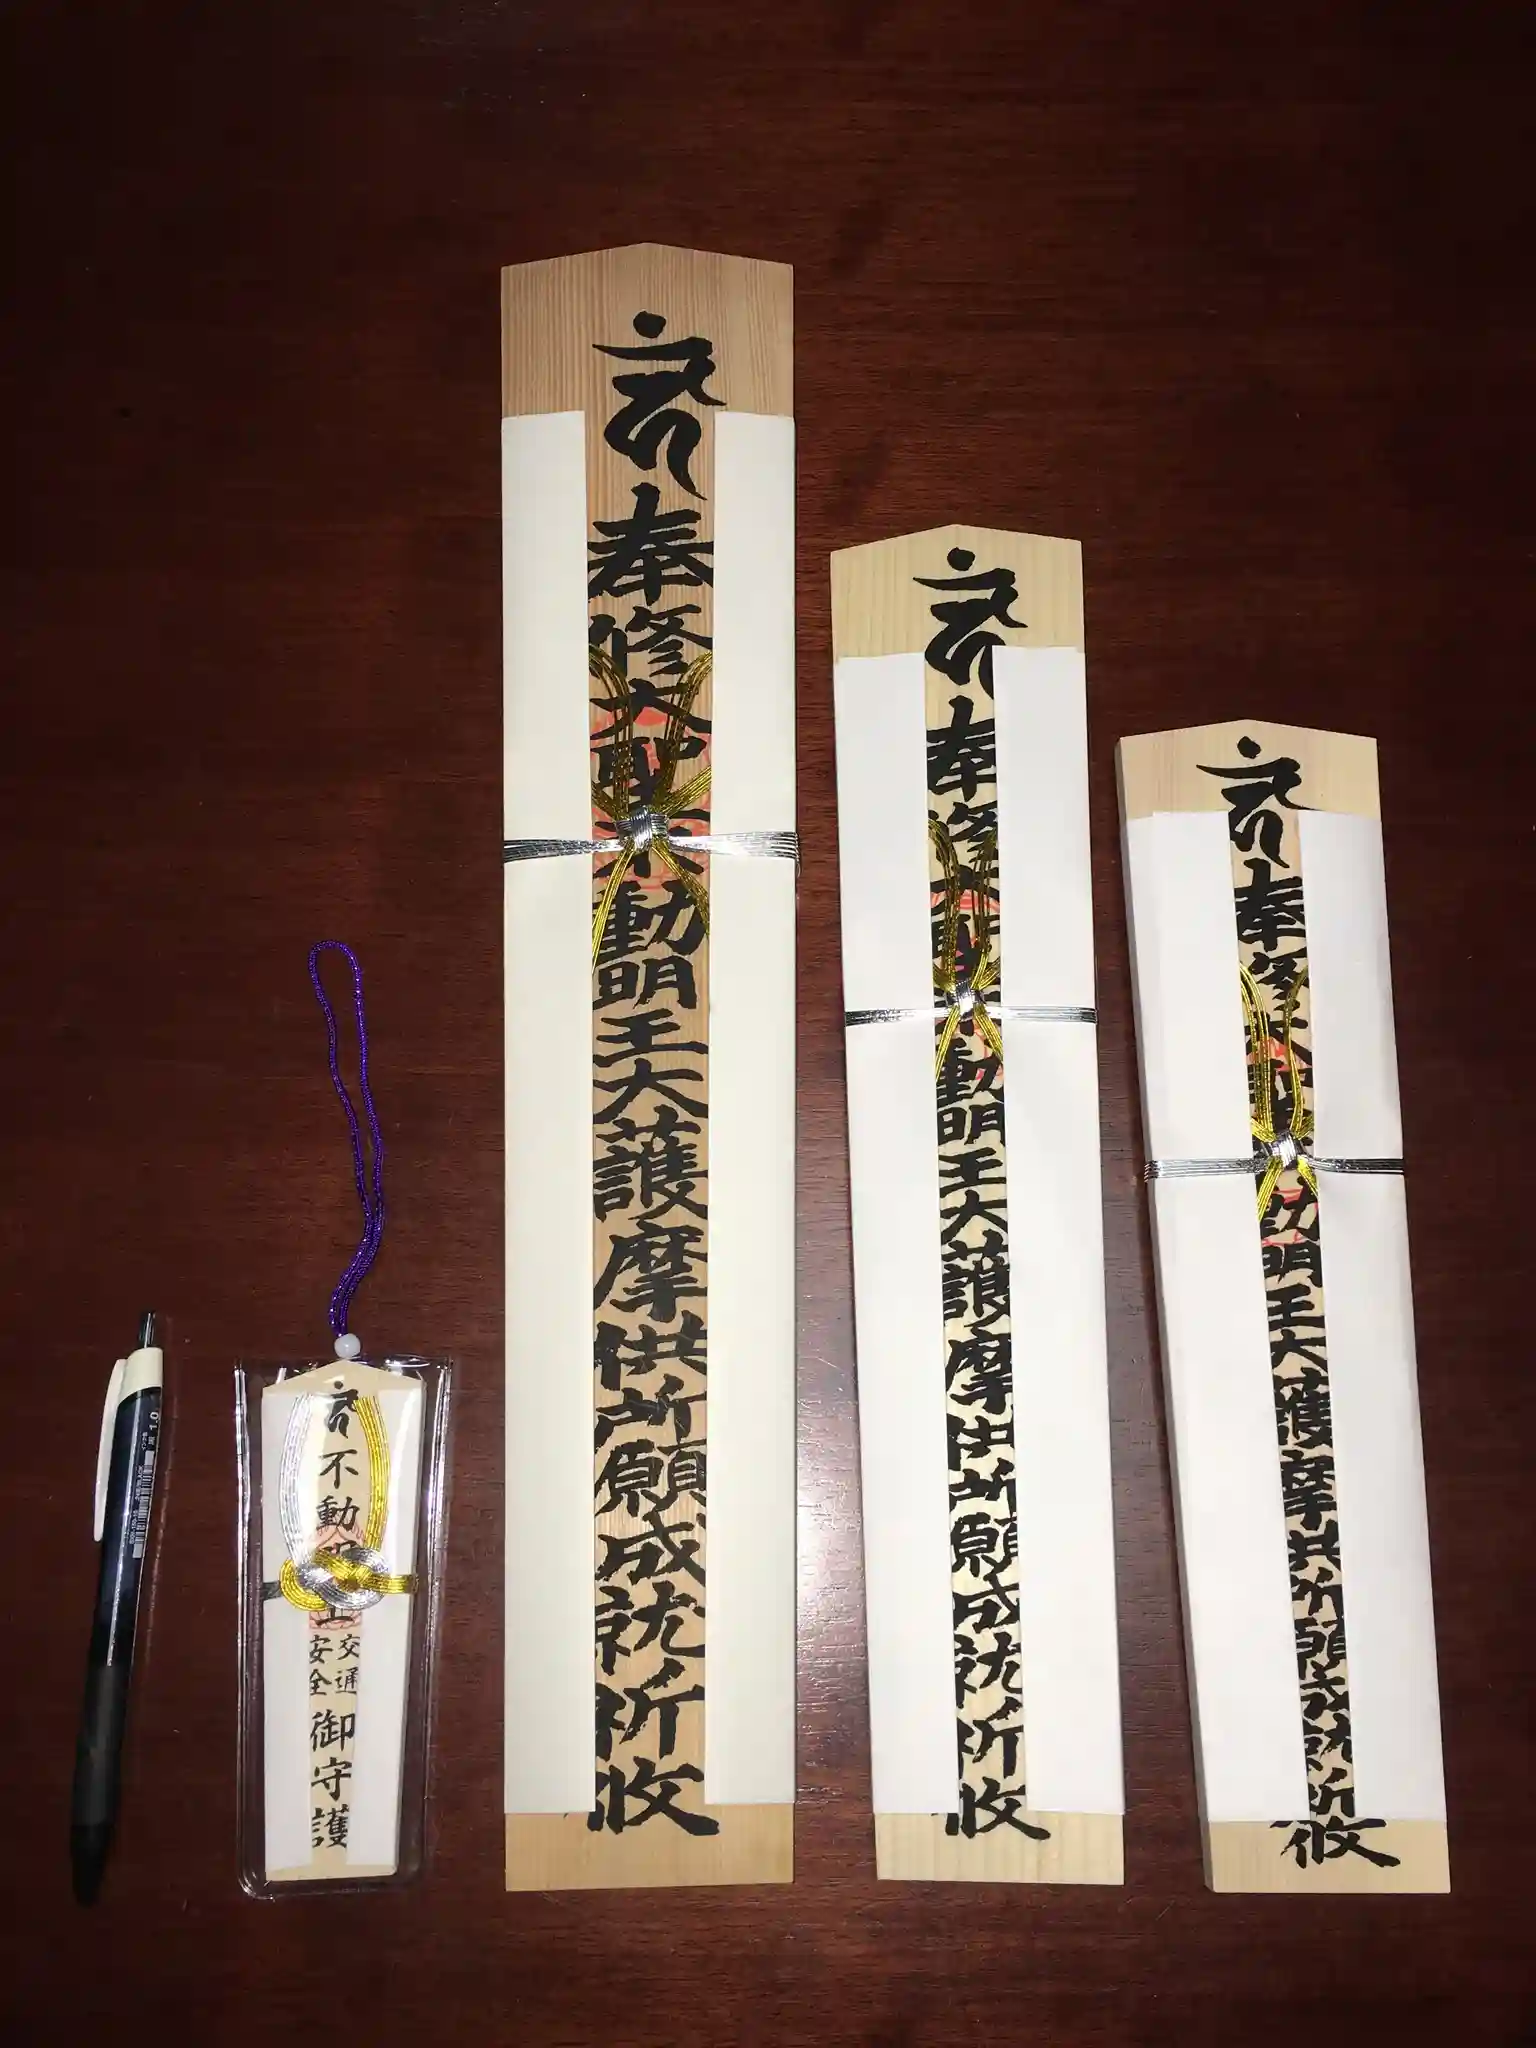 1.0
不動明王
交通
安全
御守護
奉修大聖不動明王大護摩供所願成就祈攸
奉修大聖不動明王大護摩供所願成就祈攸
奉修大聖不動明王大護摩供所願成就祈攸